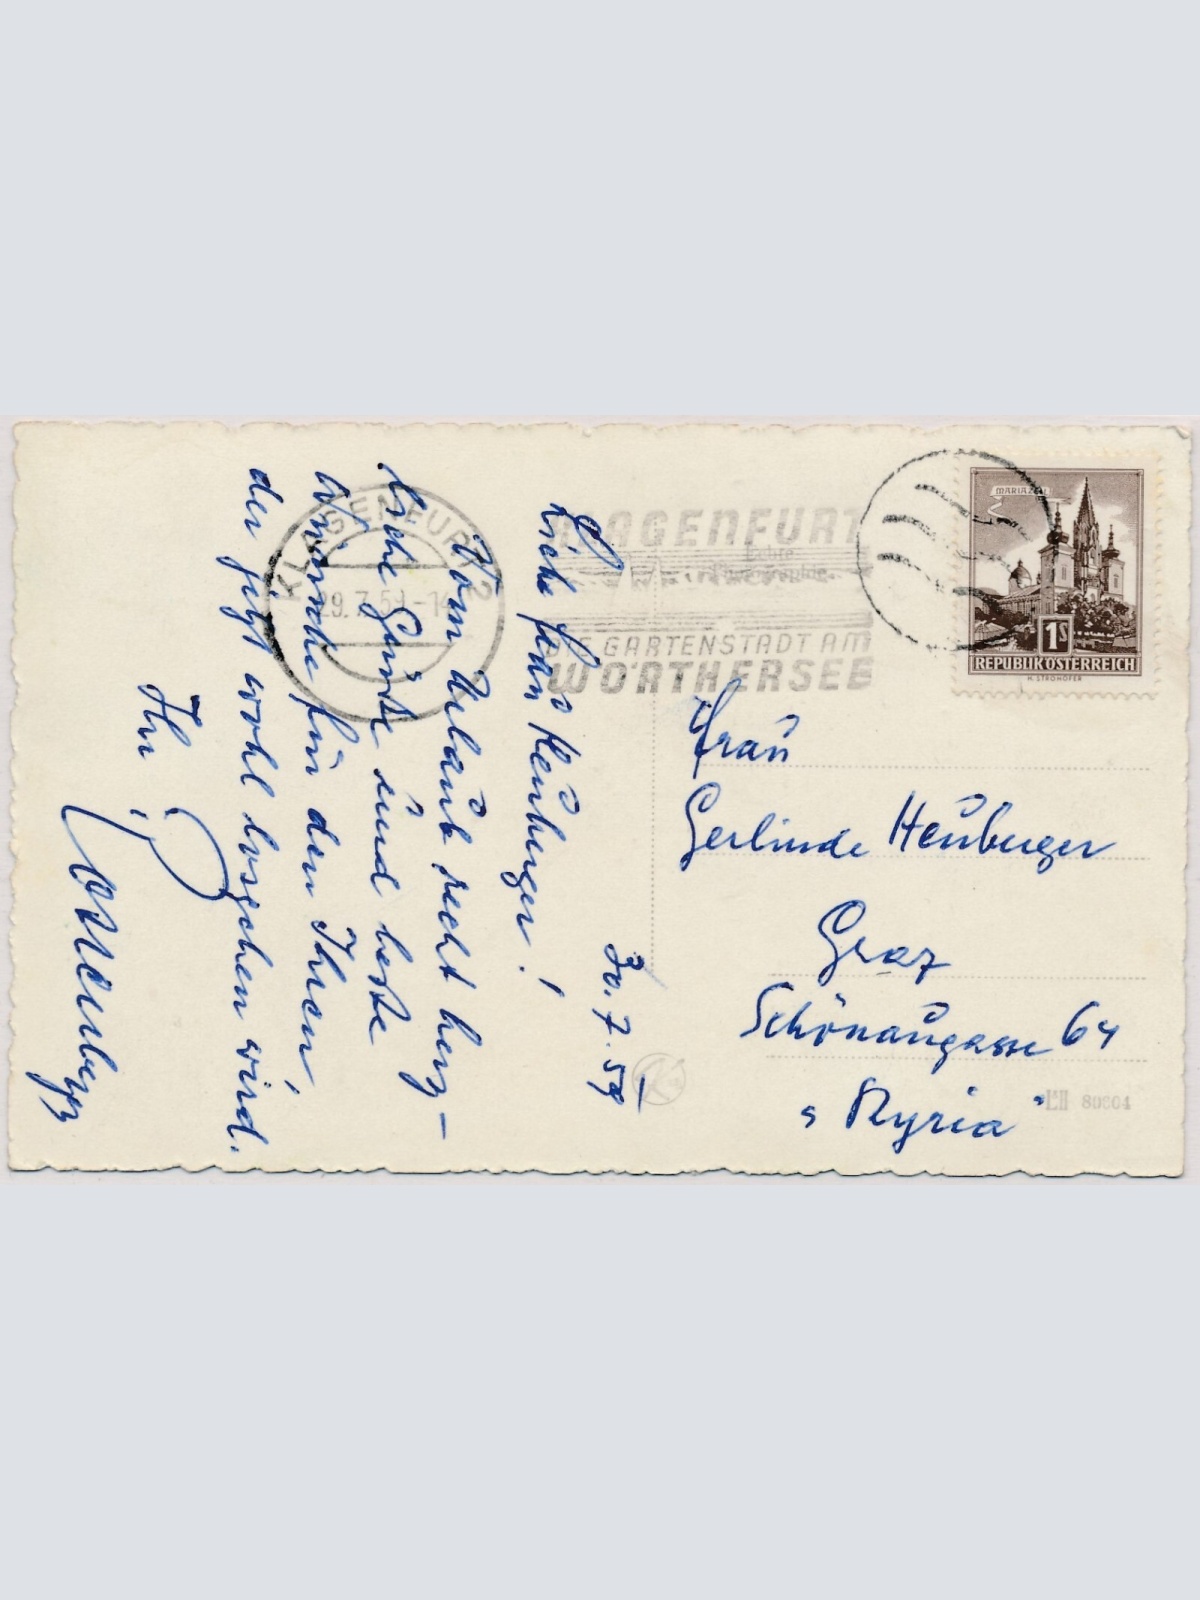 30.7.59
Liebe Frau Heuberger!
Vom Urlaub recht herz-
liche Grüße und beste
Wünsche für den Ihren
der jetzt wohl losgehen wird.
Ihr
KLAGENFURT 2
29.7.59-14
KLAGENFURT
Echte
DIE GARTENSTADT AM
WÖRTHERSEE
MARIAZELL
1S
REPUBLIK ÖSTERREICH
H. STROHOFER
Frau
Gerlinde Heuberger
Graz
Schönaugasse 64
"Kyria"
80604